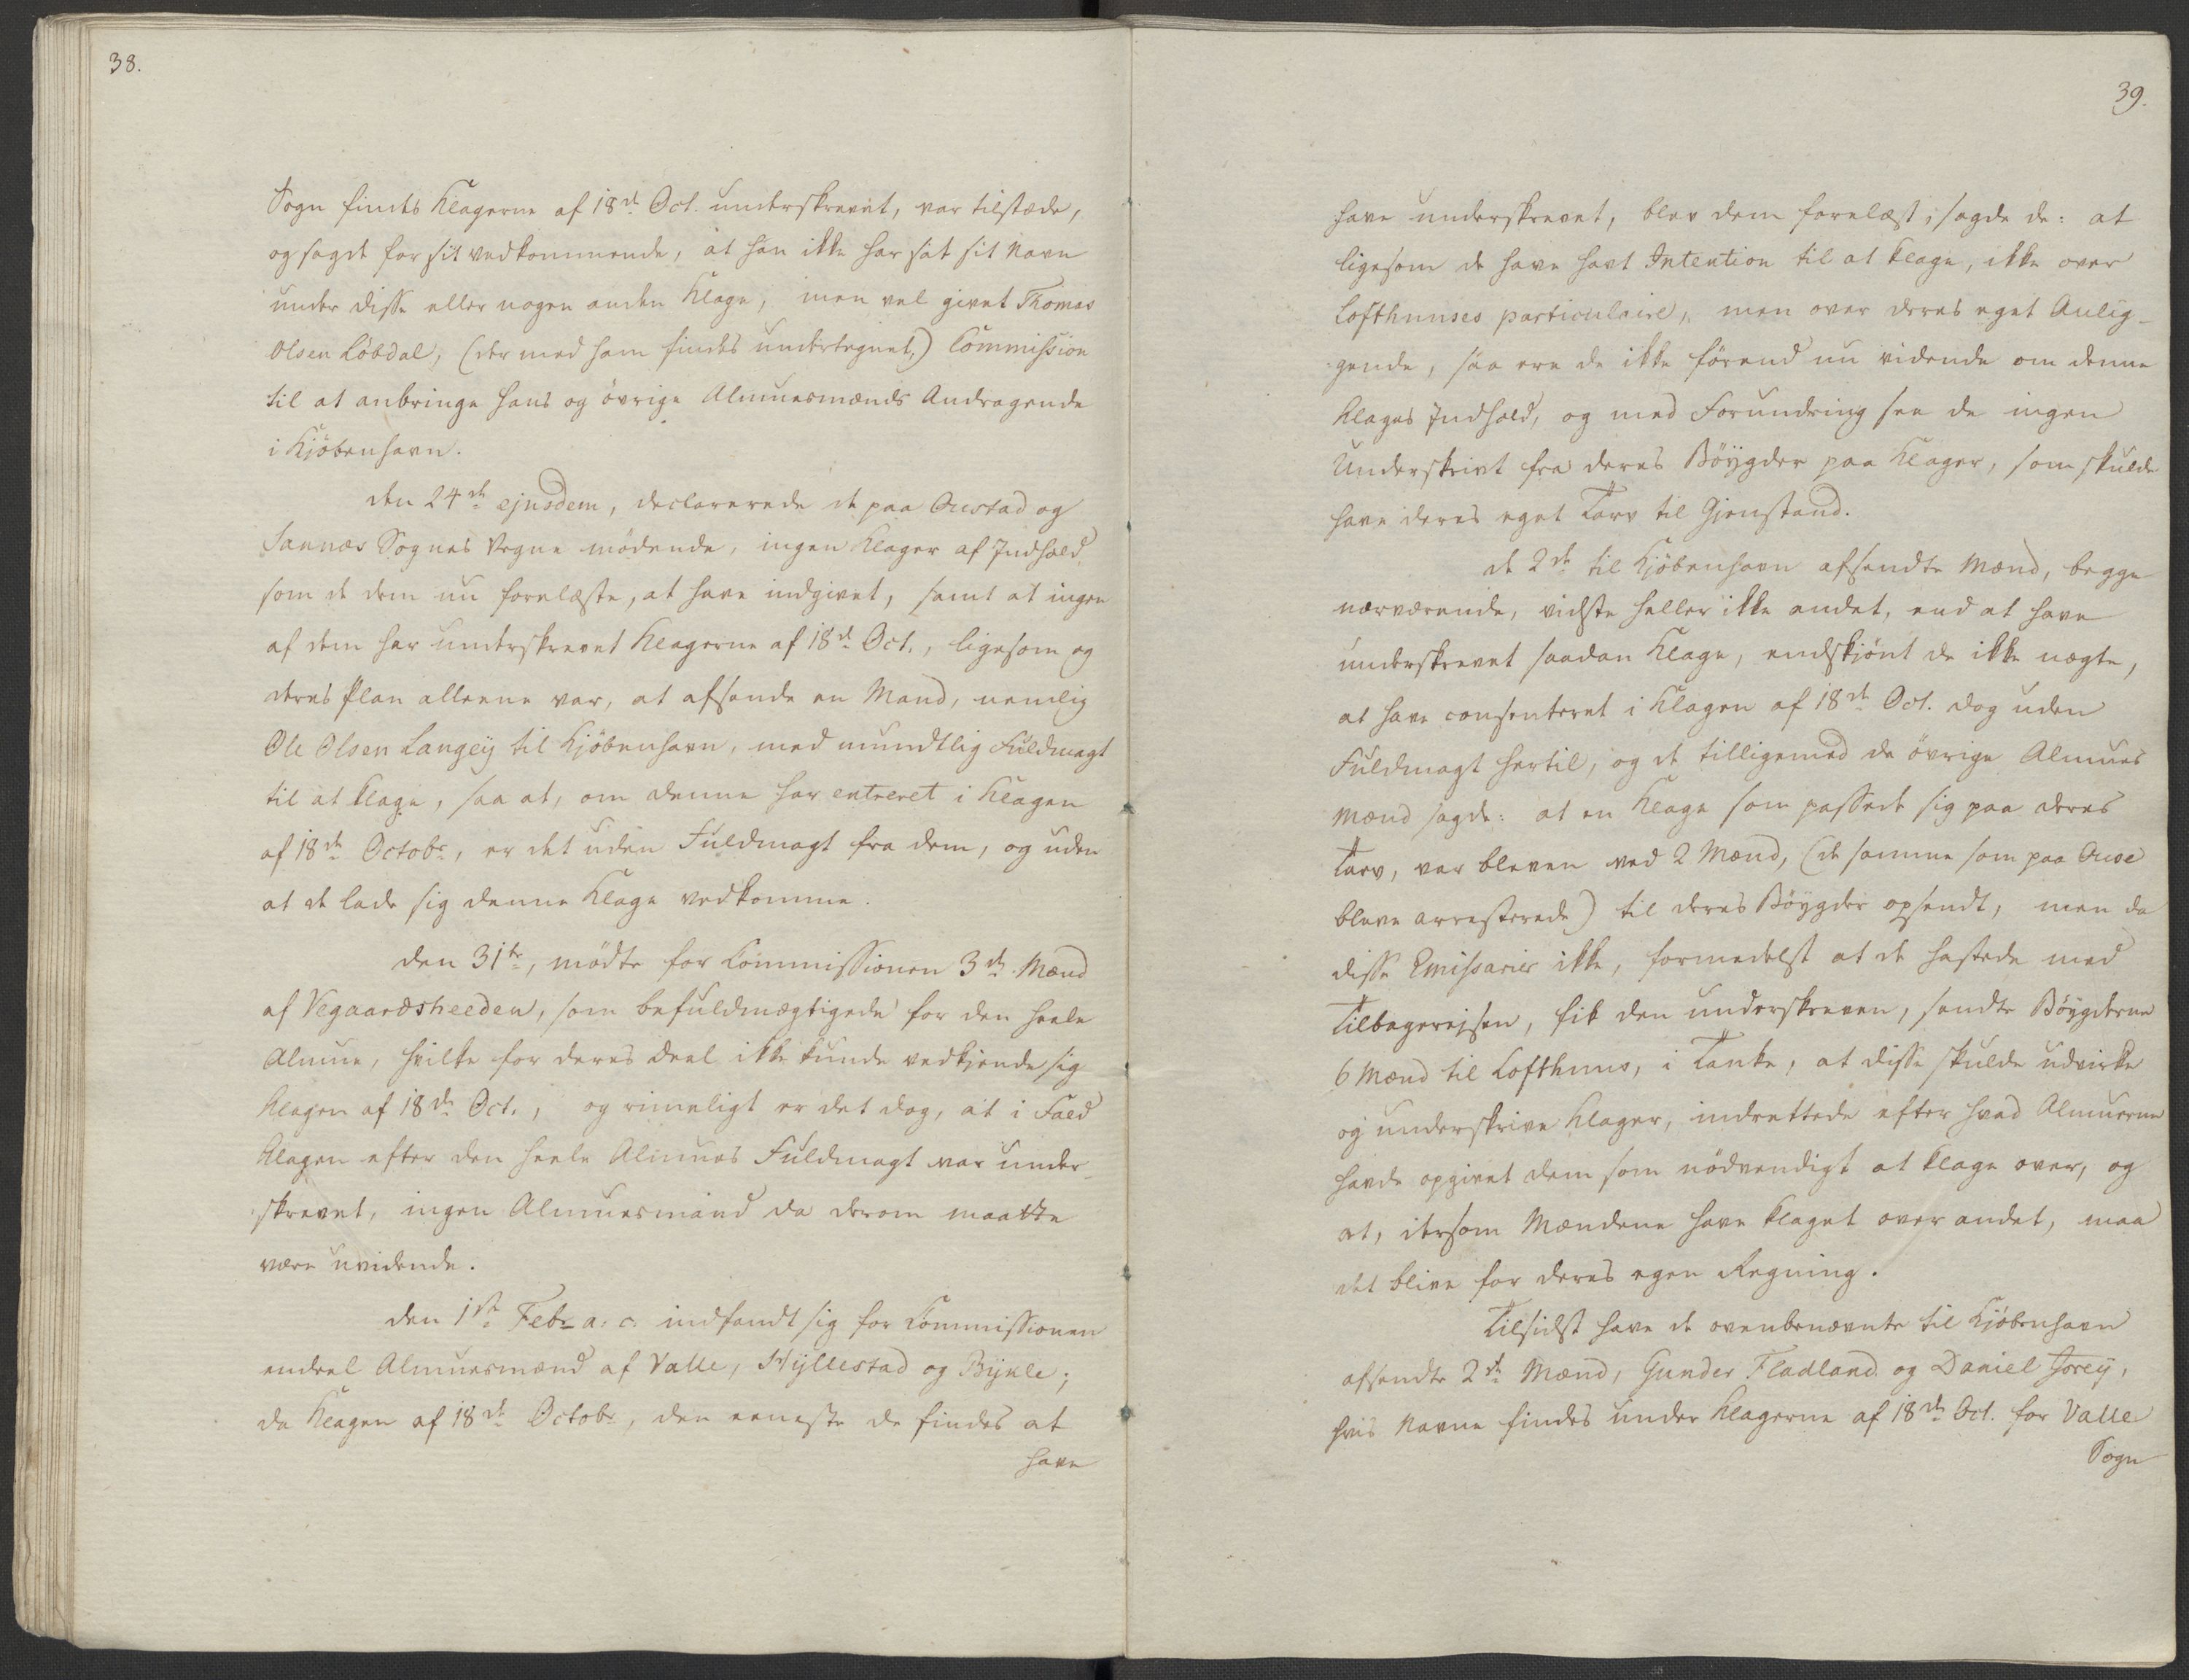 38.
Sogn findes Klagerne af 18de Oct. underskrevet, var tilstæde,
og sagde for sit vedkommende, at han ikke har sat sit Navn
under disse eller nogen anden Klage, men vel givet Thomas
Olsen Løbdal, (der med ham findes undertegnet,) Commission
til at anbringe hans og øvrige Almuesmænds Andragende
i Kjöbenhavn.
Den 24de ejusdem, declarerede de paa Austad og
Sannes Sognes Vegne mödende, ingen Klager af Indhold
som de dem nu forelæste, at have indgivet, samt at ingen
af dem har underskrevet Klagerne af 18de Oct., ligesom og
deres Plan alleene var, at afsende en Mand, nemlig
Ole Olsen Langeÿ til Kjöbenhavn, med mundtlig Fuldmagt
til at klage, saa at, om denne har entreret i Klagen
af 18de Octobr, er det uden Fuldmagt fra dem, og uden
at de lade sig denne Klage vedkomme.
Den 31te, mödte for Commissionen 3de Mænd
af Vegaardsheeden, som befuldmægtigede for den heele
Almue, hvilke for deres Deel ikke kunde vedkjende sig
Klagen af 18de Oct., og rimeligt er det dog, at i Fald
Klagen efter den heele Almues Fuldmagt var under-
skrevet, ingen Almuesmand da derom maatte
være uvidende.
Den 1ste Febr a. c. indfandt sig for Commissionen
endeel Almuesmænd af Valle, Hÿllestad og Bÿkle;
da Klagen af 18de Octobr, den eeneste de findes at
have
39.
have underskrevet, blev dem forelæst, sagde de: at
ligesom de have havt Intention til at klage, ikke over
Lofthuuses particulaire, men over deres eget Anlig-
gende, saa ere de ikke förend nu vidende om denne
Klages Indhold, og med Forundring see de ingen
Underskrivt fra deres Böÿgder paa Klager, som skulde
have deres eget Tarv til Gjenstand.
De 2de til Kjöbenhavn afsendte Mænd, begge
nærværende, vidste heller ikke andet, end at have
underskrevet saadan Klage, endskjönt de ikke nægte,
at have consenteret i Klagen af 18de Oct. dog uden
Fuldmagt hertil, og de tilligemed de övrige Almues
Mænd sagde: at en Klage som passede sig paa deres
Tarv, var bleven ved 2 Mænd, (de samme som paa Ouse
bleve arresterede) til deres Böÿgder opsendt, men da
disse Emissarier ikke, formedelst at de hastede med
Tilbagerejsen, fik den underskreven, sendte Böÿgderne
6 Mænd til Lofthuus, i Tanke, at disse skulde udvirke
og underskrive Klager, indrettede efter hvad Almuerne
havde opgivet dem som nödvendigt at klage over, og
at, dersom Mændene have klaget over andet, maa
det blive for deres egen Regning.
Tilsidst have de ovenbenævnte til Kjöbenhavn
afsendte 2de Mænd, Gunder Fladland og Daniel Joreÿ,
hvis Navne findes under Klagerne af 18de Oct. for Valle
Sogn